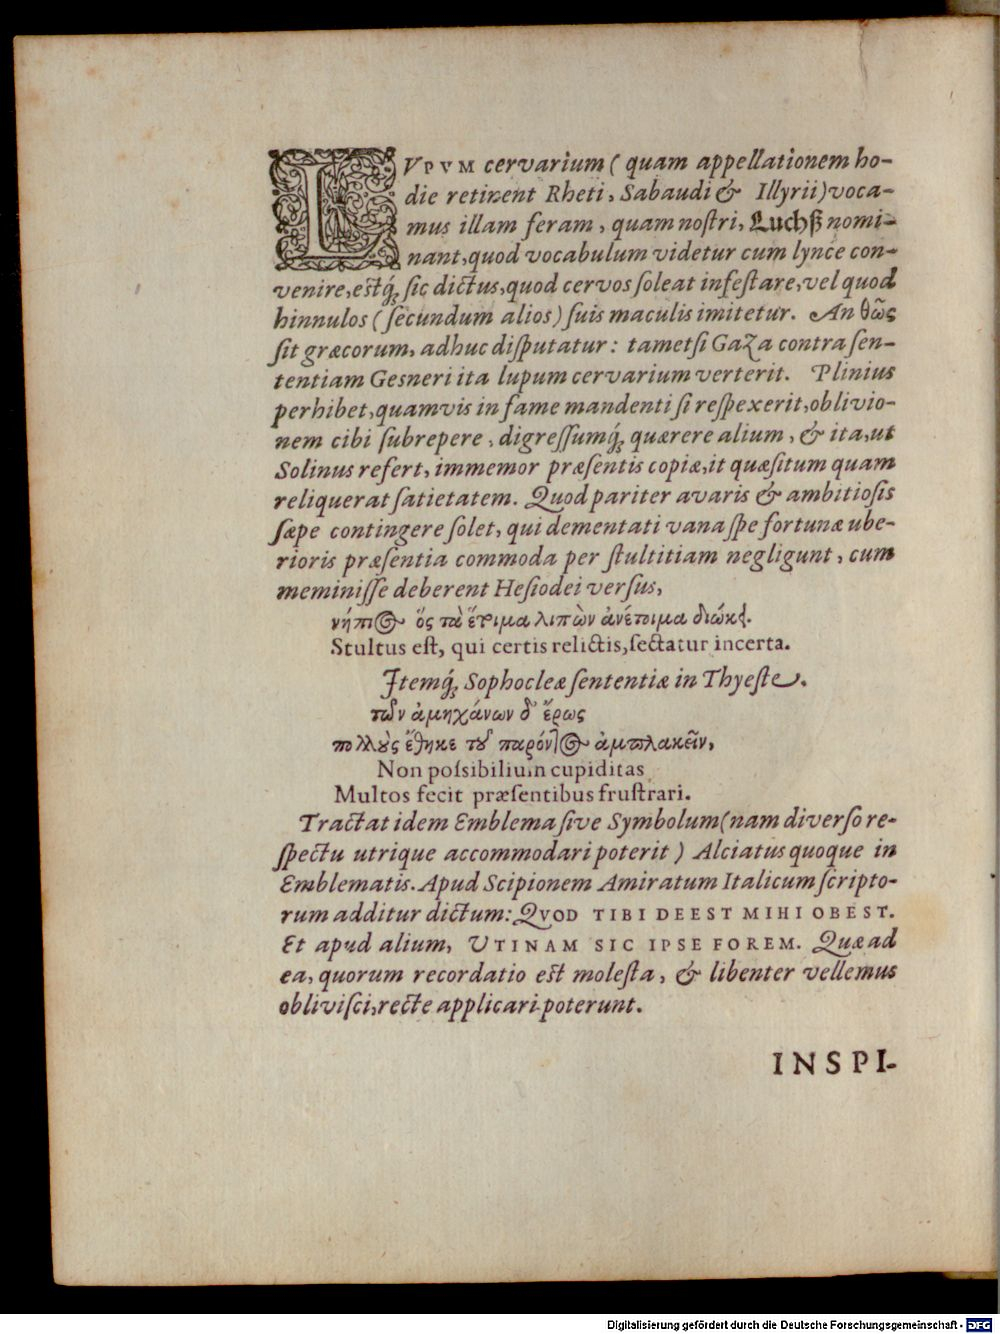 LVPVM cervarium ( quam appellationem ho-
die retinent Rheti, Sabaudi & Illyrii) voca-
mus illam feram, quam noſtri, Luchß nomi-
nant, quod vocabulum videtur cum lynce con-
venire, eſtq́; ſic dictus, quod cervos ſoleat infeſtare, vel quod
hinnulos ( ſecundum alios ) ſuis maculis imitetur. An θῶς
ſit græcorum, adhuc diſputatur: tametſi Gaza contra ſen-
tentiam Gesneri ita lupum cervarium verterit. Plinius
perhibet, quamvis in fame mandenti ſi reſpexerit, oblivio-
nem cibi ſubrepere, digreſſumq́; quærere alium, & ita, ut
Solinus refert, immemor præſentis copiæ, it quæſitum quam
reliquerat ſatietatem. Quod pariter avaris & ambitioſis
ſæpe contingere ſolet, qui dementati vana ſpe fortunæ ube-
rioris præſentia commoda per ſtultitiam negligunt, cum
meminiſſe deberent Heſiodei verſus,
νήπιος ὅς τὰ ἕτοιμα λιπὼν ἀνέτοιμα διώκει.
Stultus eſt, qui certis relictis, ſectatur incerta.
Itemq́; Sophocleæ ſententiæ in Thyeſte.
τῶν ἀμηχάνων δ' ἔρως
πολλοὺς ἔθηκε τοῦ παρόντος ἀμπλακεῖν,
Non poſsibilium cupiditas
Multos fecit præſentibus fruſtrari.
Tractat idem Emblema ſive Symbolum (nam diverſo re-
ſpectu utrique accommodari poterit ) Alciatus quoque in
Emblematis. Apud Scipionem Amiratum Italicum ſcripto-
rum additur dictum: QVOD TIBI DEEST MIHI OBEST.
Et apud alium, UTINAM SIC IPSE FOREM. Quæ ad
ea, quorum recordatio eſt moleſta, & libenter vellemus
obliviſci, recte applicari poterunt.
INSPI-
Digitalisierung gefördert durch die Deutsche Forschungsgemeinschaft - DFG